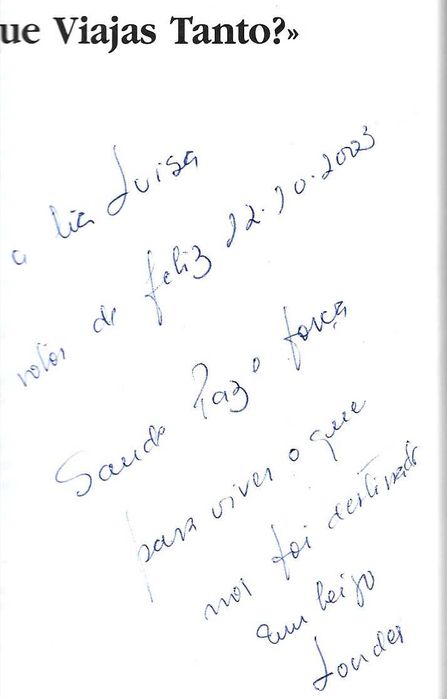 ue Viajas Tanto?»
a tia Luisa
votos de feliz 22.10.2003
Saude Paz e força
para viver o que
nos foi destinado
Um beijo